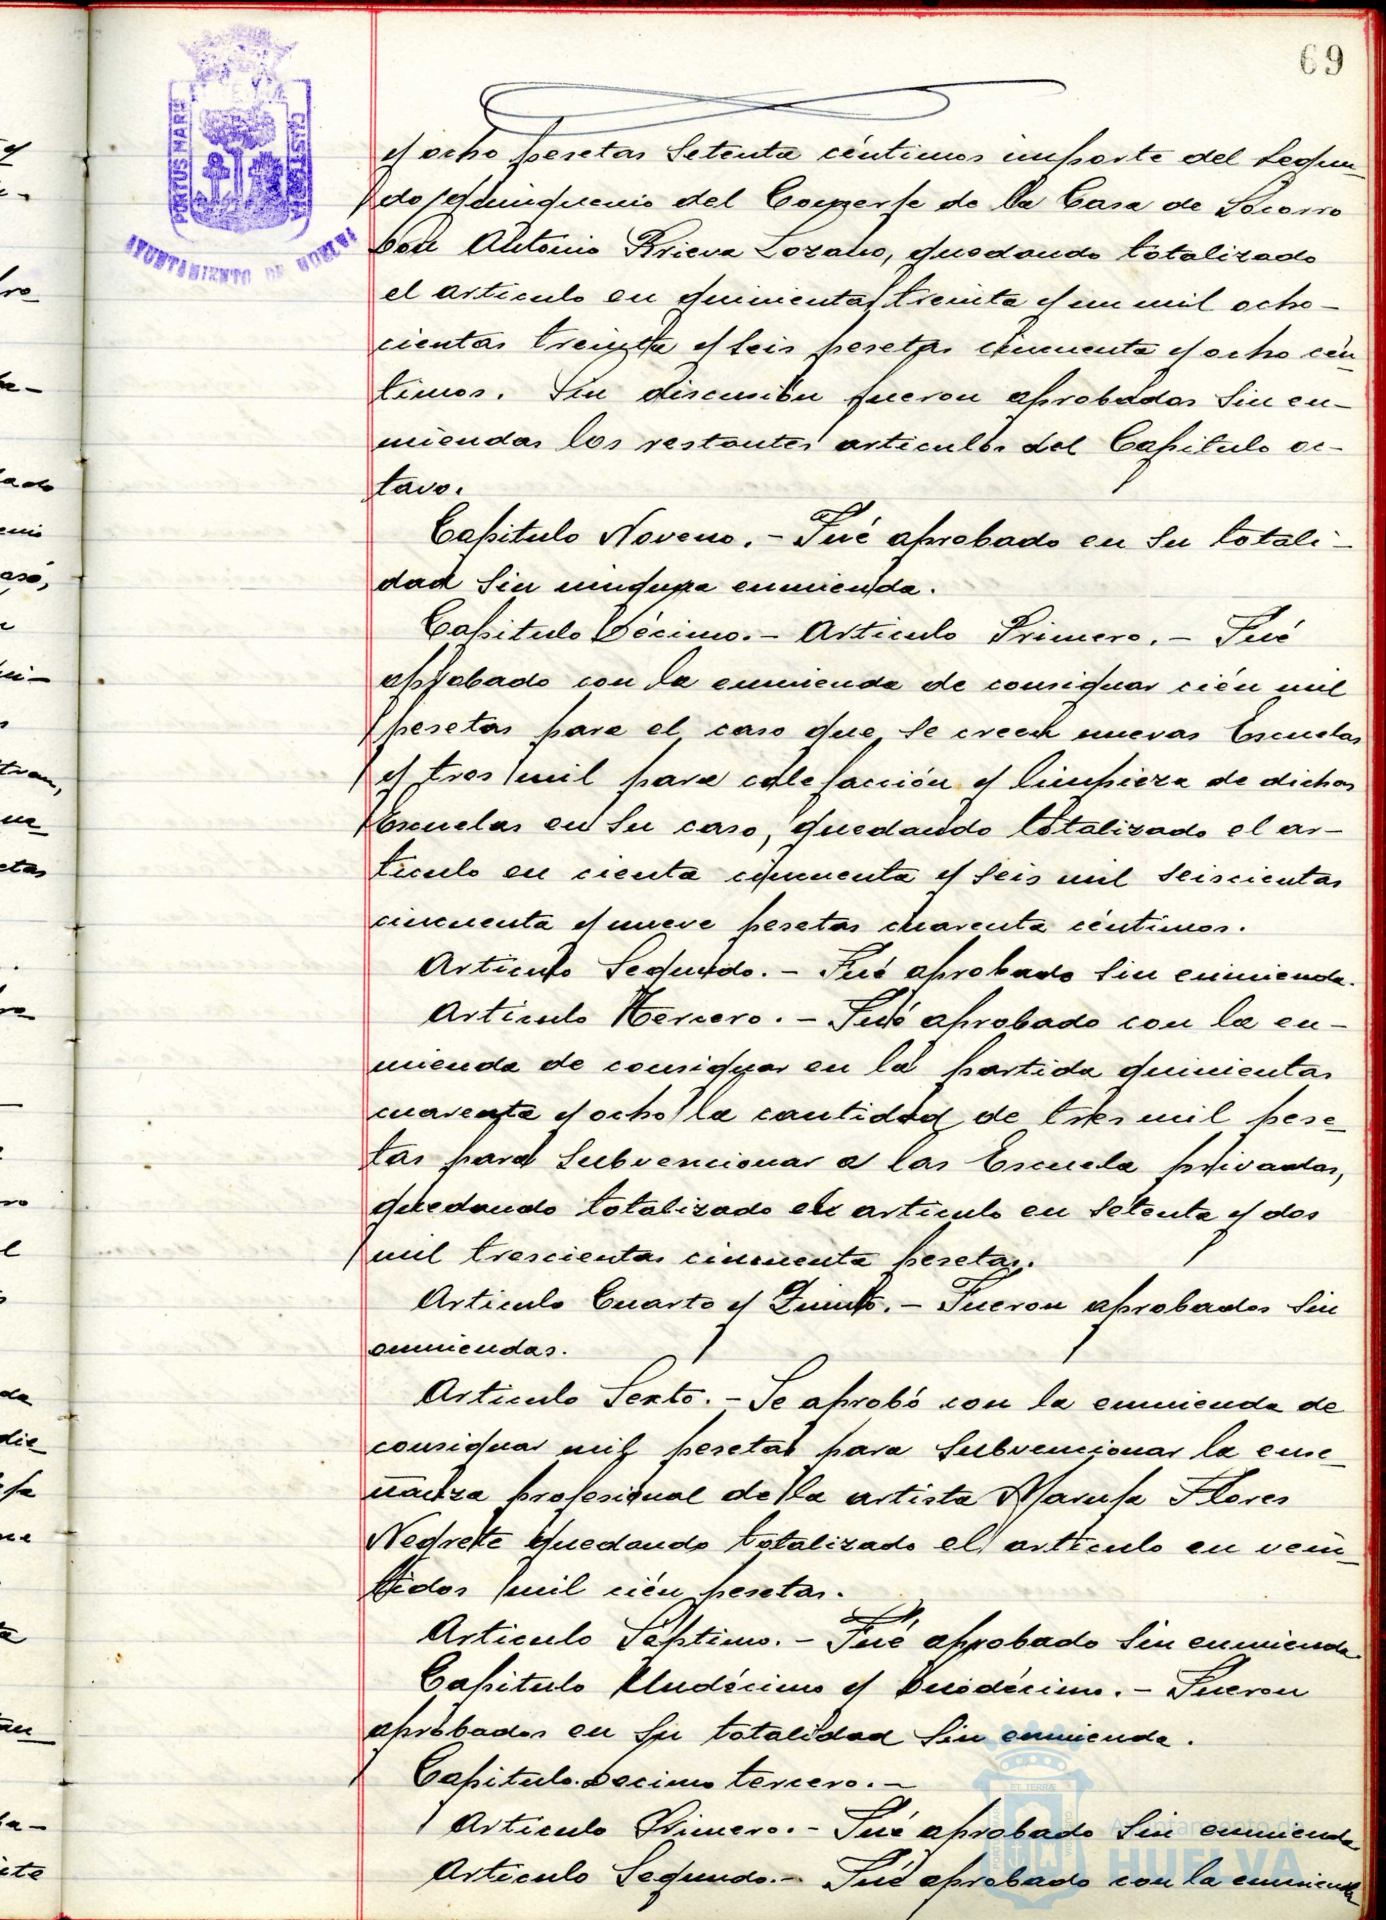 69
PORTUS MARIS ET TERRÆ CUSTODIA
AYUNTAMIENTO DE HUELVA
y ocho pesetas setenta céntimos importe del segun-
do quinquenio del Conserje de la Casa de Socorro
Don Antonio Brieva Lozano, quedando totalizado
el articulo en quinientas treinta y un mil ocho-
cientas treinta y seis pesetas cincuenta y ocho cén-
timos. Sin discusión fueron aprobados sin en-
miendas los restantes articulos del Capitulo oc-
tavo.
Capitulo Noveno.- Fué aprobado en su totali-
dad sin ninguna enmienda.
Capitulo Décimo.- Articulo Primero.- Fué
aprobado con la enmienda de consignar cién mil
pesetas para el caso que se creen nuevas Escuelas
y tres mil para calefacción y limpieza de dichas
Escuelas en su caso, quedando totalizado el ar-
ticulo en cienta cincuenta y seis mil seiscientas
cincuenta y nueve pesetas cuarenta céntimos.
Articulo Segundo.- Fué aprobado sin enmienda.
Articulo Tercero.- Fué aprobado con la en-
mienda de consignar en la partida quinientas
cuarenta y ocho la cantidad de tres mil pese-
tas para subvencionar a las Escuela privadas,
quedando totalizado el articulo en setenta y dos
mil trescientas cincuenta pesetas.
Articulo Cuarto y Quinto.- Fueron aprobados sin
enmiendas.
Articulo Sexto.- Se aprobó con la enmienda de
consignar mil pesetas para subvencionar la ense-
ñanza profesional de la artista Maruja Flores
Negrete quedando totalizado el articulo en vein-
tidos mil cién pesetas.
Articulo Séptimo.- Fué aprobado sin enmienda
Capitulo Undécimo y Duodécimo.- Fueron
aprobados en su totalidad sin enmienda.
Capitulo Decimo tercero.-
Articulo Primero.- Fué aprobado sin enmienda
Articulo Segundo.- Fué aprobado con la enmienda
Ayuntamiento de
HUELVA